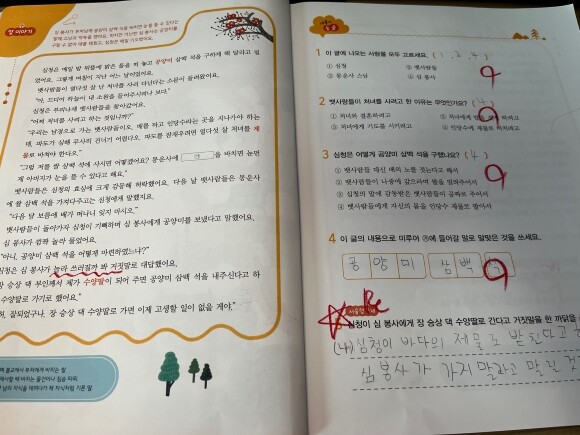 앞 이야기
심 봉사가 부처님께 공양미 삼백 석을 바치면 눈을 뜰 수 있다는
말에 스님과 약속을 했어요. 하지만 가난한 심 봉사는 공양미를
구할 수 없어 애를 태웠고, 심청은 매일 기도했어요.
심청은 매일 밤 뒤뜰에 맑은 물을 떠 놓고 공양미 삼백 석을 구하게 해 달라고 빌
었어요. 그렇게 며칠이 지난 어느 날이었어요.
뱃사람들이 열다섯 살 난 처녀를 사러 다닌다는 소문이 들려왔어요.
"아, 드디어 하늘이 내 소원을 들어주시려나 보다."
심청은 부리나케 뱃사람들을 찾아갔어요.
"어째 처녀를 사려고 하는 것입니까?"
"우리는 남경으로 가는 뱃사람들이오. 배를 타고 인당수라는 곳을 지나가야 하는
데, 파도가 심해 무사히 건너기가 어렵다오. 파도를 잠재우려면 열다섯 살 처녀를 제
물로 바쳐야 한다오."
"그럼 저를 쌀 삼백 석에 사시면 어떻겠어요? 몽운사에 을 바치면 눈먼
제 아버지가 눈을 뜰 수 있다고 해요."
뱃사람들은 심청의 효심에 크게 감동해 허락했어요. 다음 날 뱃사람들은 몽운사
에 쌀 삼백 석을 가져다주고는 심청에게 말했지요.
"다음 달 보름에 배가 떠나니 잊지 마시오."
뱃사람들이 돌아가자 심청이 기뻐하며 심 봉사에게 공양미를 보냈다고 말했어요.
심 봉사가 깜짝 놀라 물었어요.
"아니, 공양미 삼백 석을 어떻게 마련하였느냐?"
심청은 심 봉사가 놀라 쓰러질까 봐 거짓말로 대답했어요.
댁 부인께서 제가 수양딸이 되어 주면 공양미 삼백 석을 내주신다고 하
수양딸로 가기로 했어요."
잘되었구나. 장 승상 댁 수양딸로 가면 이제 고생할 일이 없을 게야."
불교에서 부처에게 바치는 쌀
제사할 때 바치는 물건이나 짐승 따위
남의 자식을 데려다가 제 자식처럼 기른 딸
1 이 글에 나오는 사람을 모두 고르세요. ( 1, 2, 4 )
① 심청 ② 뱃사람들
③ 몽운사 스님 ④ 심 봉사
2 뱃사람들이 처녀를 사려고 한 이유는 무엇인가요? ( 4 )
① 처녀와 결혼하려고 ② 처녀에게 하려고
③ 처녀에게 기도를 시키려고 ④ 인당수에 제물로 바치려고
3 심청은 어떻게 공양미 삼백 석을 구했나요? ( 4 )
① 뱃사람들 대신 배의 노를 젓는다고 해서
② 뱃사람들이 나중에 갚으라며 쌀을 빌려주어서
③ 심청의 말에 감동받은 뱃사람들이 공짜로 주어서
④ 뱃사람들에게 자신의 몸을 인당수 제물로 팔아서
4 이 글의 내용으로 미루어 ㉮에 들어갈 말로 알맞은 것을 쓰세요.
공 양 미 삼 백 석
서술형
심청이 심 봉사에게 장 승상 댁 수양딸로 간다고 거짓말을 한 까닭을
심청이 바다의 제물로 바친다고
심봉사가 가지 말라고 말린 것